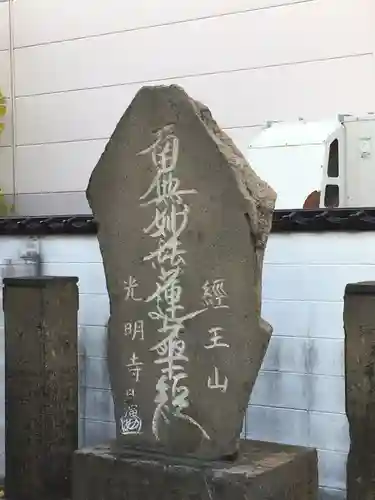 經王山
南無妙法蓮華経
光明寺日